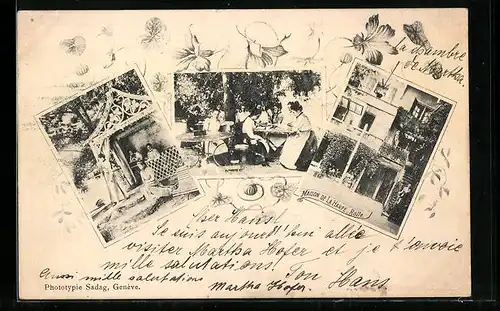 la chambre
de Martha.
MAISON DE LA HARPE, Rolle
Cher Hans!
Je suis aujourd'hui allé
visiter Martha Hofer et je t'envoie
mille salutations!
Ton Hans
Aussi mille salutations
Martha Hofer.
Phototypie Sadag, Genève.